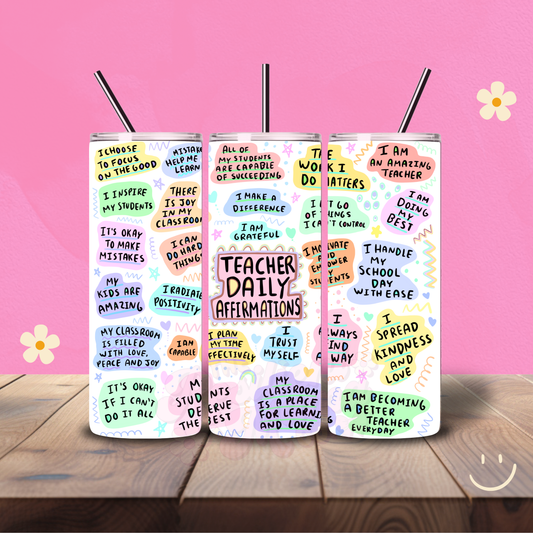 I CHOOSE
TO FOCUS
ON THE GOOD
MISTAK
HELP ME
LEARN
I INSPIRE
MY STUDENTS
THERE
IS JOY
IN MY
CLASSROOM
IT'S OKAY
TO MAKE
MISTAKES
I CAN
DO HARD
THINGS
MY
KIDS ARE
AMAZING
I RADIATE
POSITIVITY
MY CLASSROOM
IS FILLED
WITH LOVE,
PEACE AND JOY
I AM
CAPABLE
IT'S OKAY
IF I CAN'T
DO IT ALL
M
STUD
DE
THE
ALL OF
MY STUDENTS
ARE CAPABLE
OF SUCCEEDING
I MAKE A
DIFFERENCE
I AM
GRATEFUL
TEACHER
DAILY
AFFIRMATIONS
I PLAN
MY TIME
EFFECTIVELY
I
TRUST
MYSELF
ENTS
ERVE
EST
MY
CLASSROOM
IS A PLACE
FOR LEARNING
AND LOVE
THE
WORK I
DO MATTERS
I AM
AN AMAZING
TEACHER
I LET GO
OF THINGS
I CAN'T CONTROL
I AM
DOING
MY
BEST
I MOTIVATE
AND
EMPOWER
MY
STUDENTS
I HANDLE
MY
SCHOOL
DAY
WITH EASE
I
ALWAYS
FIND
A WAY
I
SPREAD
KINDNESS
AND
LOVE
I AM BECOMING
A BETTER
TEACHER
EVERYDAY